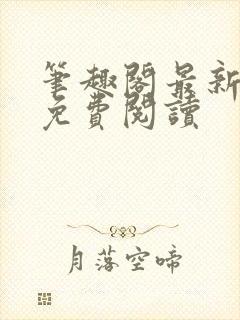 筆趣閣最新
免費閱讀
月落空啼